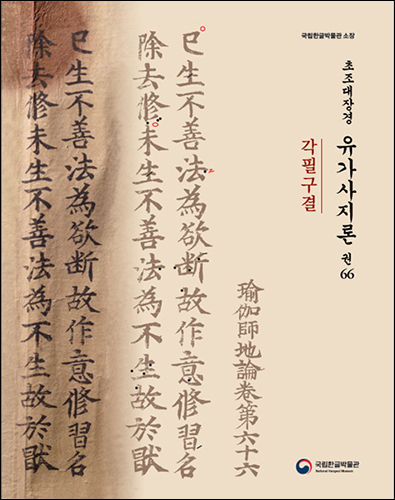 국립한글박물관 소장
초조대장경
유가사지론 권66
각필구결
瑜伽師地論卷第六十六
巳生不善法為欲断故作意修習名
除去修未生不善法為不生故於猒
巳生不善法為欲断故作意修習名
除去修未生不善法為不生故於猒
국립한글박물관
National Hangeul Museum